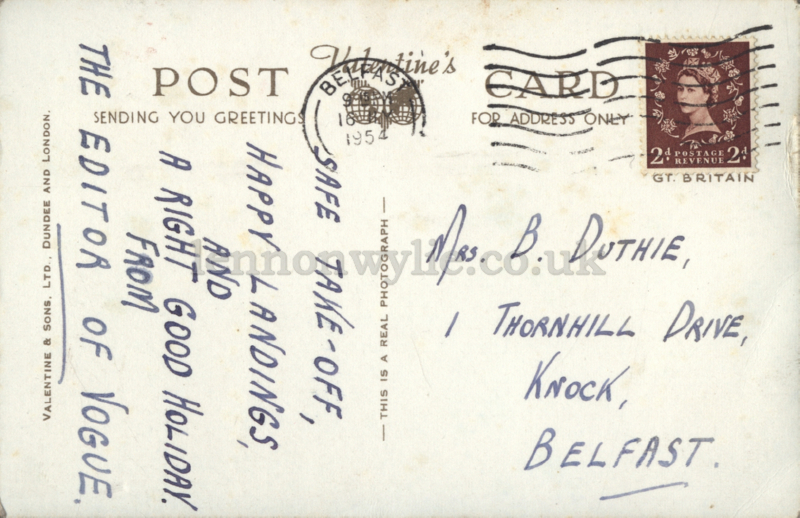 Valentine's
POST CARD
SENDING YOU GREETINGS
FOR ADDRESS ONLY
BELFAST
1954
2D POSTAGE REVENUE 2D
GT. BRITAIN
SAFE TAKE-OFF,
HAPPY LANDINGS,
AND
A RIGHT GOOD HOLIDAY.
FROM
THE EDITOR OF VOGUE.
VALENTINE & SONS, LTD., DUNDEE AND LONDON.
— THIS IS A REAL PHOTOGRAPH —
MRS. B. DUTHIE,
1 THORNHILL DRIVE,
KNOCK,
BELFAST.
lennonwylie.co.uk